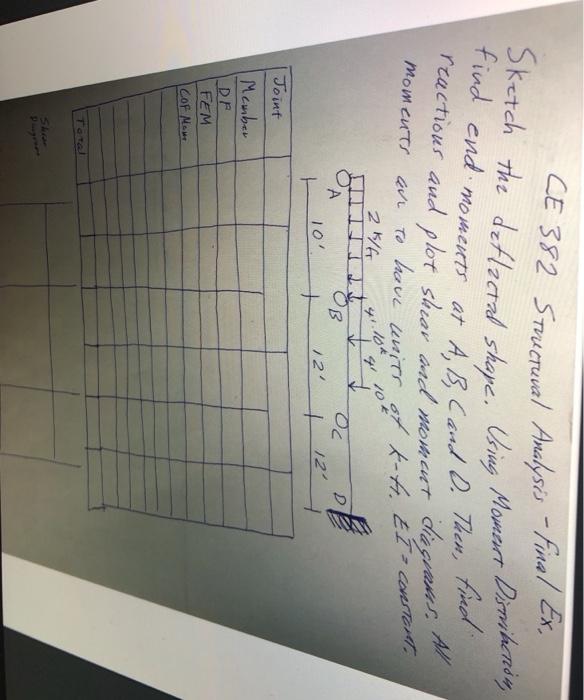 CE 382 Structural Analysis - Final Ex.
Sketch the deflected shape. Using Moment Distribution
find end moments at A, B, C and D. Then, find
reactions and plot shear and moment diagrams. All
moments are to have units of k-ft. EI = constant.
2 k/ft 4' 10k 4' 10k
A B C D
10' 12' 12'
Joint
Member
DF
FEM
COF Mom
Total
Shear
Diagram